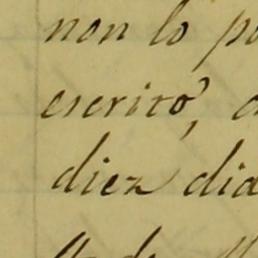 non lo po
escrito, a
diez dia